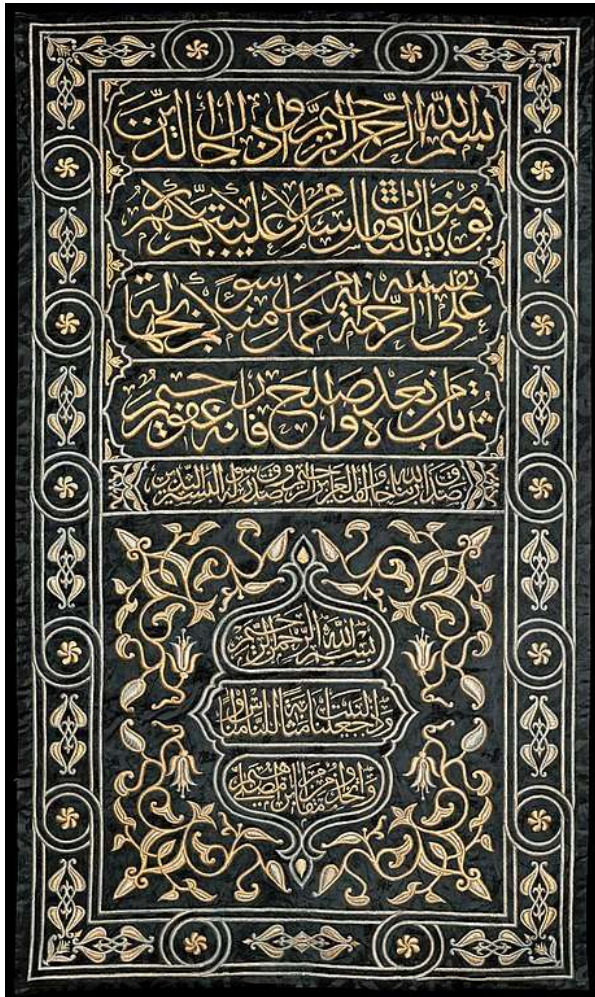 بسم الله الرحمن الرحيم وإذا جاءك الذين
يؤمنون بآياتنا فقل سلام عليكم كتب ربكم
على نفسه الرحمة أنه من عمل منكم سوءا بجهالة
ثم تاب من بعده وأصلح فأنه غفور رحيم
صدق الله ربنا الخالق العزيز الرحيم وصدق رسوله
بسم الله الرحمن الرحيم
وإذ جعلنا البيت مثابة للناس وأمنا
واتخذوا من مقام إبراهيم مصلى